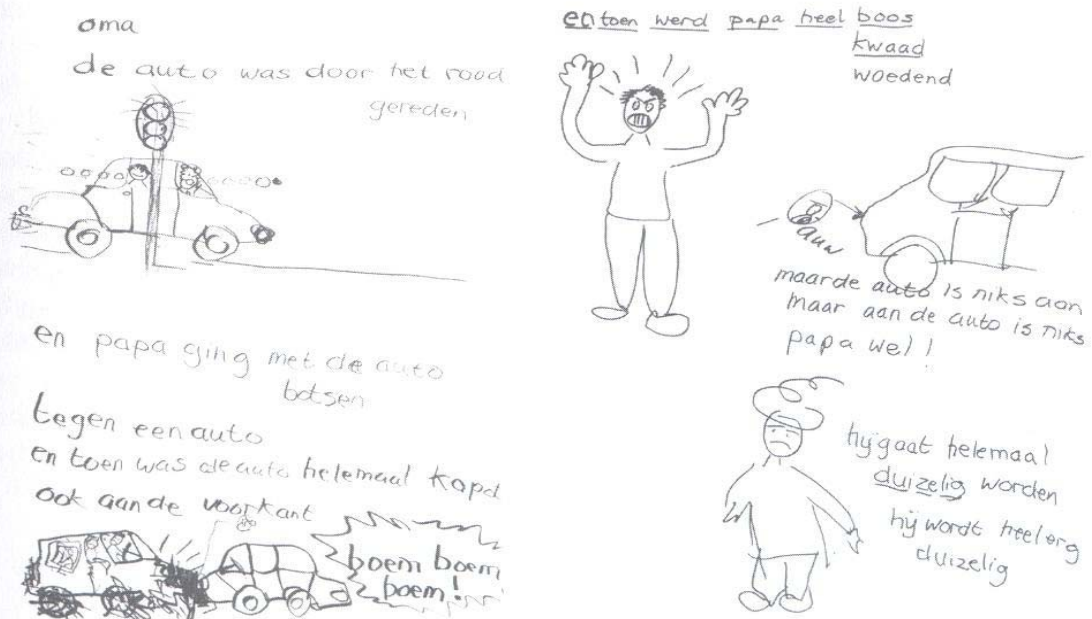 oma
de auto was door het rood
gereden
en papa ging met de auto
botsen
tegen een auto
en toen was de auto helemaal kapot
ook aan de voorkant
boem boem
boem!
en toen werd papa heel boos
kwaad
woedend
auw
maar de auto is niks aan
maar aan de auto is niks
papa wel!
hij gaat helemaal
duizelig worden
hij wordt heel erg
duizelig